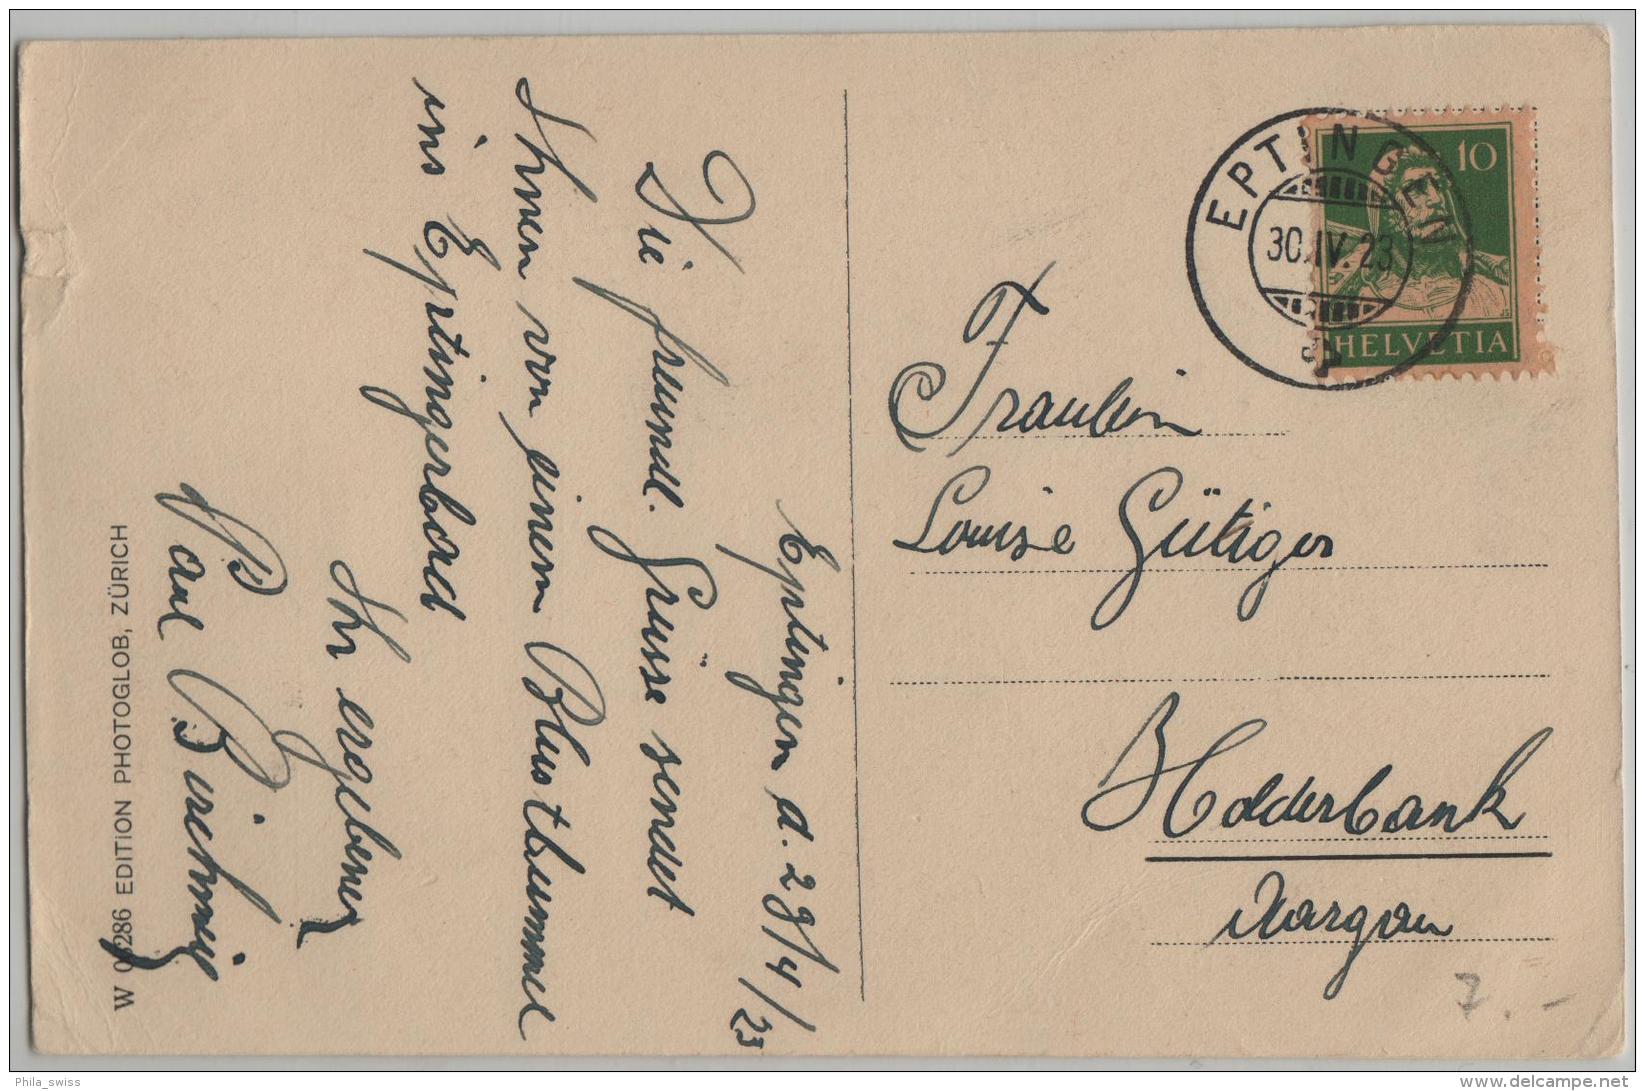 Eptingen d. 29/4/23
Die freundl. Grüsse sendet
Ihnen von einem Blustbummel
ins Eptingerbad
Ihr ergebener
Paul
W 00286 EDITION PHOTOGLOB, ZÜRICH
EPTINGEN
30.IV.23
10
HELVETIA
Fräulein
Louise Gütiger
Holderbank
Aargau
7.-
Phila_swiss
www.delcampe.net